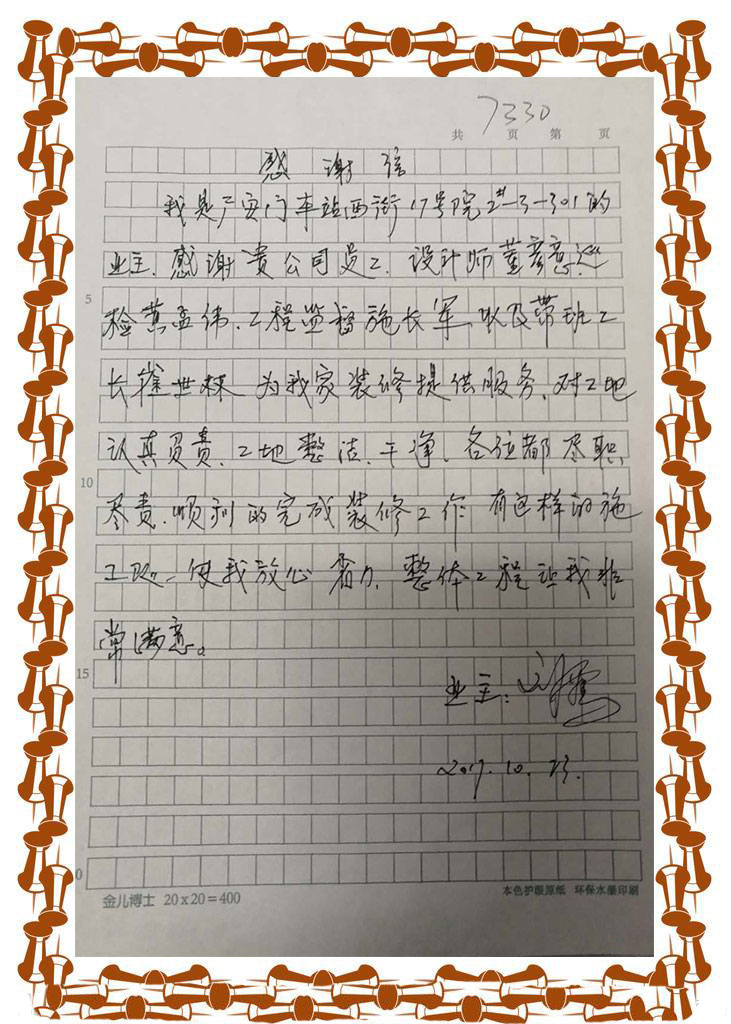 7330
共 页 第 页
感谢信
我是广安门车站西街17号院2#-3-301的
业主.感谢贵公司员工.设计师董彦意.巡
检黄孟伟.工程监督施长军.以及带班工
长崔世林 为我家装修提供服务.对工地
认真负责.工地整洁.干净.各位都尽职
尽责.顺利的完成装修工作 有这样的施
工队.使我放心 省力.整体工程让我非
常满意。
业主:
2017.10.23.
5
10
15
0
金儿博士 20x20=400
本色护眼原纸 环保水墨印刷